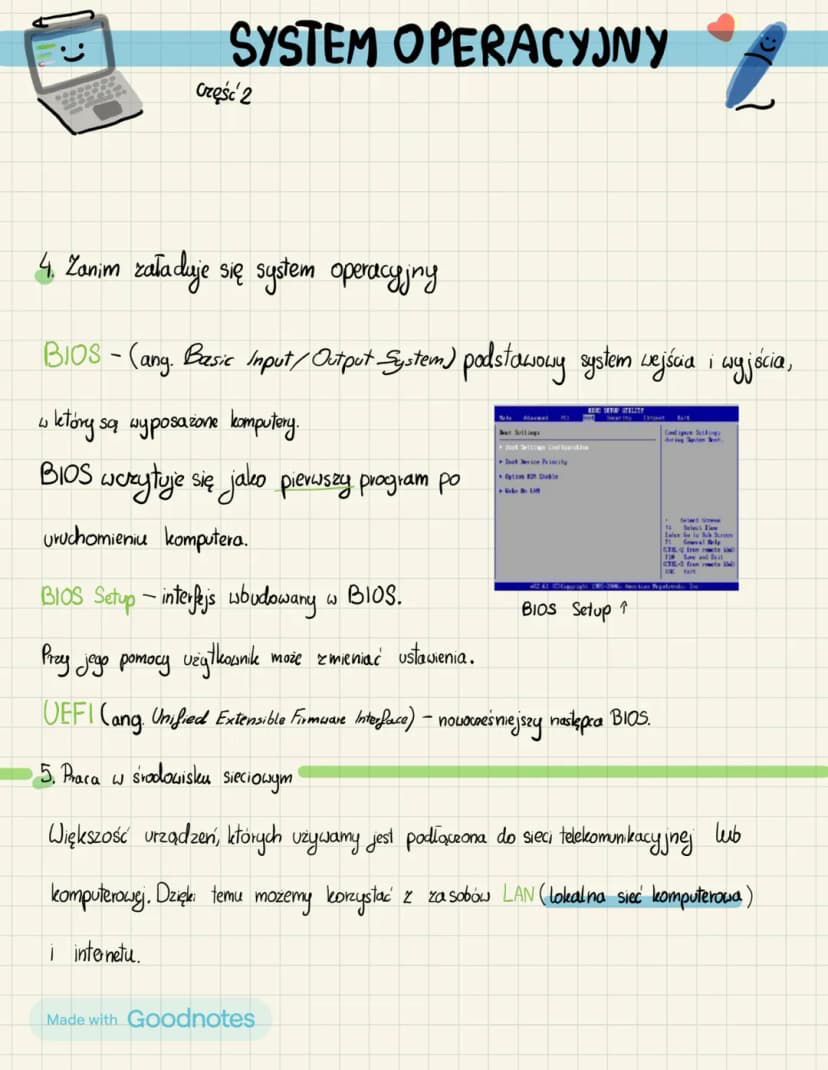 SYSTEM OPERACYJNY
część 2
4. Zanim załaduje się system operacyjny
BIOS - (ang. Basic Input/Output System) podstawowy system wejścia i wyjścia,
w który są wyposażone komputery.
BIOS wczytuje się jako pierwszy program po
uruchomieniu komputera.
BIOS SETUP UTILITY
Main Advanced PCI Boot Security Chipset Exit
Boot Settings
Boot Settings Configuration
Boot Device Priority
Option ROM Enable
Wake On LAN
Configure Settings
during System Boot.
Select Screen
Select Item
Enter Go to Sub Screen
F1 General Help
F10 Save and Exit
ESC Exit
BIOS Setup ↑
BIOS Setup – interfejs wbudowany w BIOS.
Przy jego pomocy użytkownik może zmieniać ustawienia.
UEFI (ang. Unified Extensible Firmware Interface) – nowocześniejszy następca BIOS.
5. Praca w środowisku sieciowym
Większość urządzeń, których używamy jest podłączona do sieci telekomunikacyjnej lub
komputerowej. Dzięki temu możemy korzystać z zasobów LAN (lokalna sieć komputerowa)
i internetu.
Made with Goodnotes